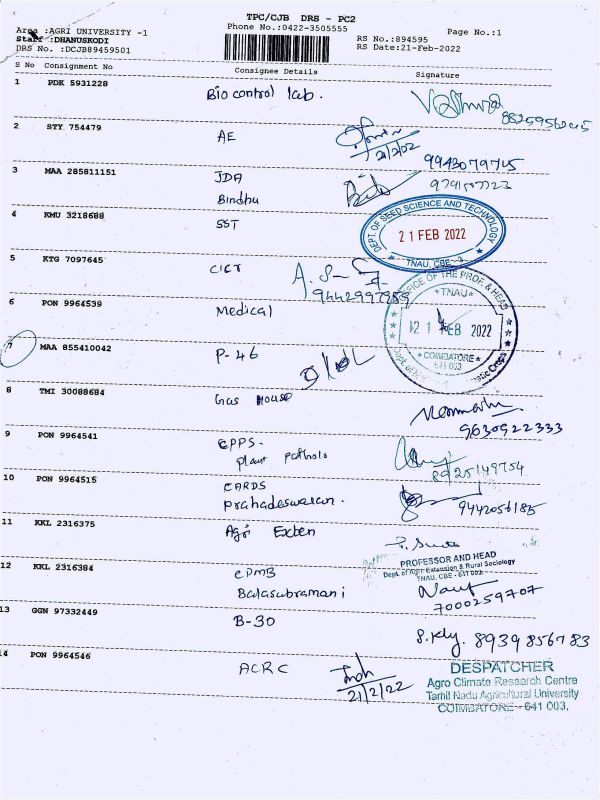 TPC/CJB DRS - PC2
Area :AGRI UNIVERSITY -1
Phone No.:0422-3505555
Page No.:1
Staff :DHANUSKODI
RS No.:894595
DRS No. :DCJB89459501
RS Date:21-Feb-2022
S No Consignment No Consignee Details Signature
1 PDK 5931228 Bio control lab.
2 STY 754479 AE
21/2/02
3 MAA 285811151 JDA
Bindhu
4 KMU 3218688 SST
DEPT. OF SEED SCIENCE AND TECHNOLOGY
21 FEB 2022
TNAU, CBE - 3
5 KTG 7097645 CIET
6 PON 9964539 Medical
OFFICE OF THE PROF. & HEAD
TNAU
21 FEB 2022
COIMBATORE
641 003
7 MAA 855410042 P-46
8 TMI 30088684 Gas House
9630922333
9 PON 9964541 CPPS-
plant patholo
8925149754
10 PON 9964515 CARDS
Prahadeswaran.
9442056185
11 KKL 2316375 Agri Exten
PROFESSOR AND HEAD
Dept. of Agri. Extension & Rural Sociology
TNAU, CBE - 641 003.
12 KKL 2316384 CPMB
Balasubramani
7000259707
13 GGN 97332449 B-30
8939856783
14 PON 9964546 ACRC
21/2/22
DESPATCHER
Agro Climate Research Centre
Tamil Nadu Agricultural University
COIMBATORE - 641 003.